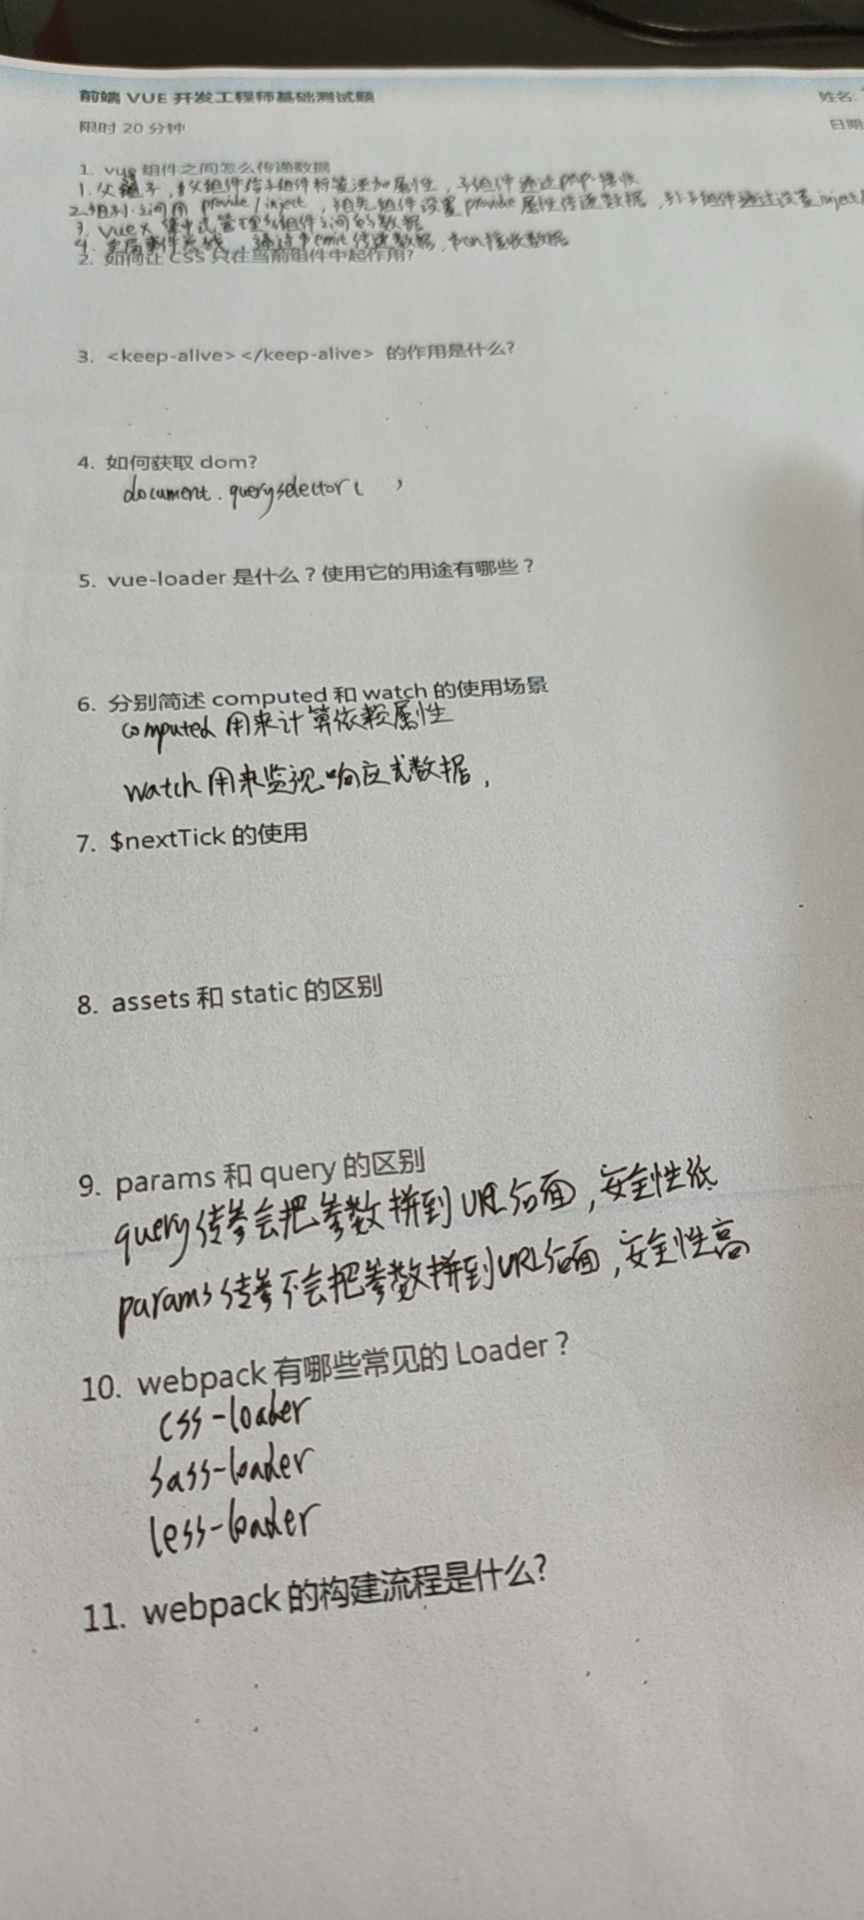 前端 VUE 开发工程师基础测试题
姓名:
限时 20 分钟
日期
1. vue 组件之间怎么传递数据
1. 父子, 父组件给子组件标签添加属性, 子组件通过 prop 接收
2. 祖孙之间用 provide / inject , 祖先组件设置 provide 属性传递数据, 孙子组件通过设置 inject
3. vuex 集中式管理组件之间的数据
4. 全局事件总线, 通过 $emit 传递数据, $on 接收数据
2. 如何让 CSS 只在当前组件中起作用?
3. <keep-alive></keep-alive> 的作用是什么?
4. 如何获取 dom?
document.queryselector( )
5. vue-loader 是什么？使用它的用途有哪些？
6. 分别简述 computed 和 watch 的使用场景
computed 用来计算依赖属性
watch 用来监视响应式数据,
7. $nextTick 的使用
8. assets 和 static 的区别
9. params 和 query 的区别
query传参会把参数拼到URL后面,安全性低
params传参不会把参数拼到URL后面,安全性高
10. webpack 有哪些常见的 Loader？
css-loader
sass-loader
less-loader
11. webpack 的构建流程是什么?